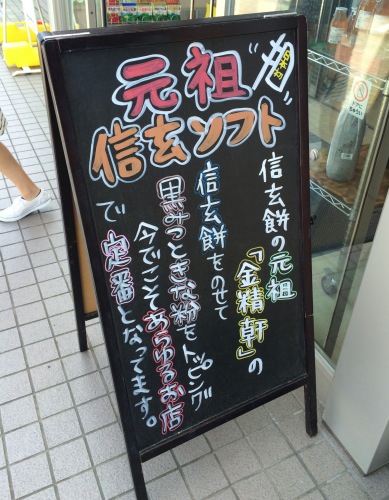 元祖
信玄ソフト
信玄餅の元祖
「金精軒」の
信玄餅をのせて
黒みつときな粉をトッピング
今でこそあらゆるお店
で定番となってます。